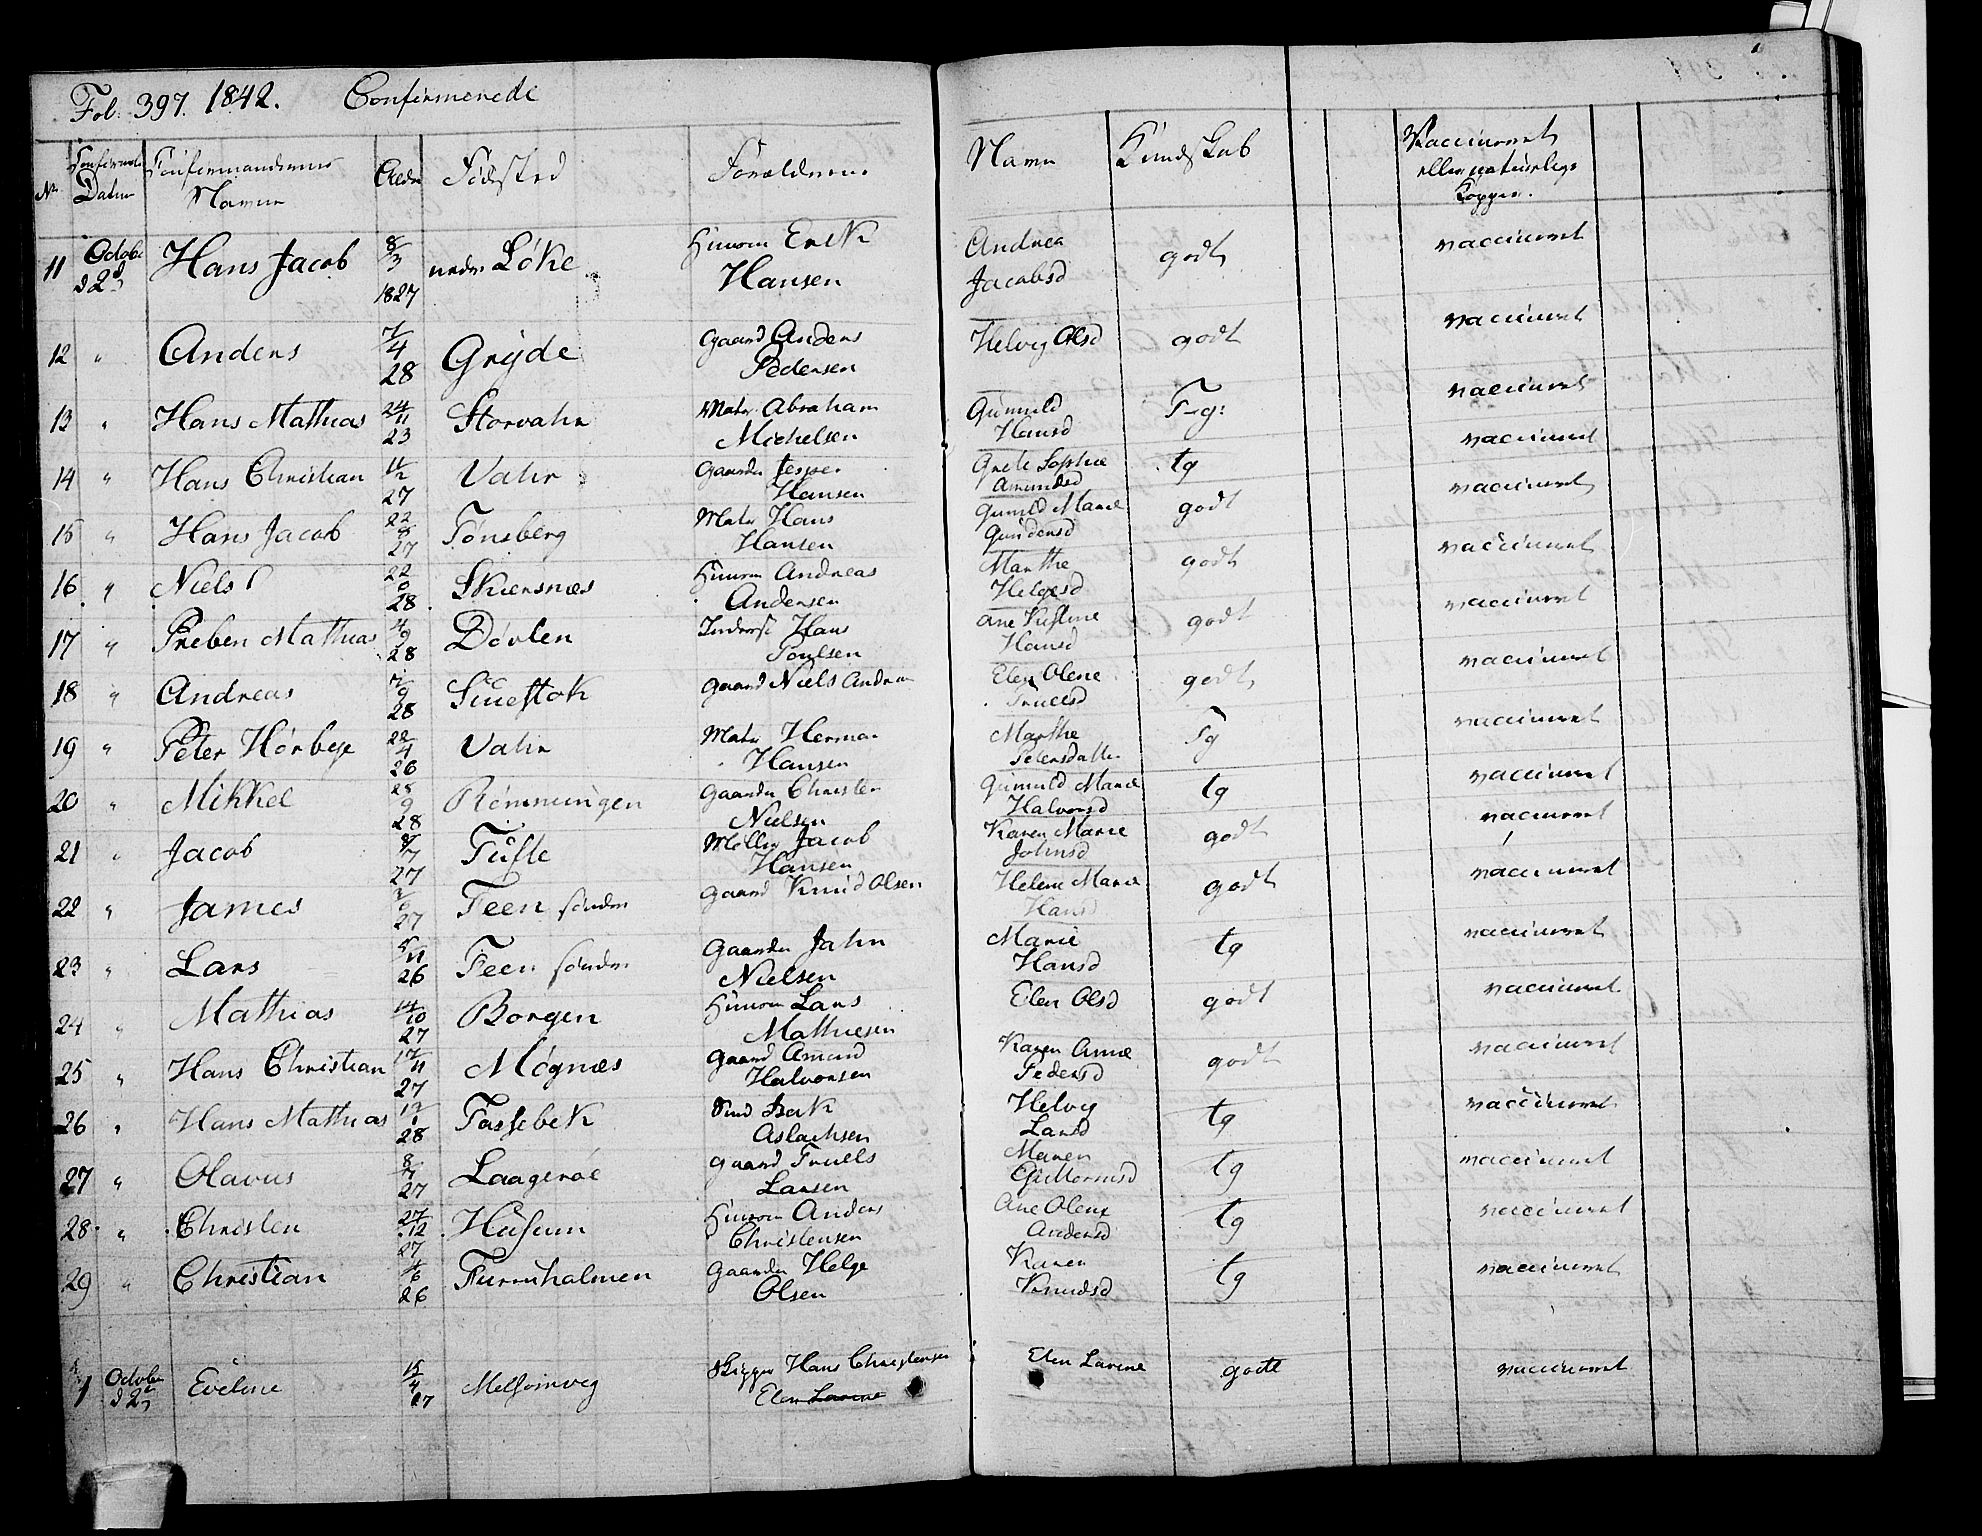 Fol. 397. 1842. Confirmerede
Nr Confirmat. Datum Confirmandernes Navne Alder Fødested Forældrenes Navne Kundskab Vaccineret eller naturlige Kopper.
11 Octob. d 2d Hans Jacob 8/3 1827 nedre Løke Huusm Erik Hansen Andrea Jacobsd godt vaccineret
12 " Anders 7/4 28 Gryde Gaard Anders Pedersen Helvig Olsd godt vaccineret
13 " Hans Mathias 24/11 23 Storvahr Matr. Abraham Michelsen Gunnild Hansd T-g: vaccineret
14 " Hans Christian 11/2 27 Vahr Gaardm Jesper Hansen Grete Sophie Amundsd tg vaccineret
15 " Hans Jacob 22/8 27 Tønsberg Matr Hans Hansen Gunild Marie Gundersd godt vaccineret
16 " Niels 22/ 28 Skiersnæs Huusm Andreas Andersen Marthe Helgesd godt vaccineret
17 " Preben Mathias 4/9 28 Døvlen Inderst Hans Poulsen Ane Kistine Hansd godt vaccineret
18 " Andreas /9 28 Gaard Niels Elen Olene Truelsd godt vaccineret
19 " Peter Hørbye 22/4 26 Vahr Matr Herman Hansen Marthe Petersdatter Tg vaccineret
20 " Mikkel 28/9 28 Rømmingen Gaardm Christen Nielsen Gunnild Marie Halvorsd tg vaccineret
21 " Jacob 8/7 27 Tufte Møller Jacob Hansen Karen Marie Johnsd godt vaccineret
22 " James 27 Feen søndre Gaard Knud Olsen Helene Marie Hansd godt vaccineret
23 " Lars 5/11 26 Feen søndre Gaardm Jahn Nielsen Marie Hansd tg vaccineret
24 " Mathias 14/10 27 Borgen Huusm Lars Mathiesen Elen Olsd godt vaccineret
25 " Hans Christian 17/11 27 Møgnæs Gaard Amund Halvorsen Karen Anne Pedersd godt vaccineret
26 " Hans Mathias 12/1 28 Fassebek Isak Aslachsen Helvig Larsd tg vaccineret
27 " Olavus 8/7 27 Laagerøe Gaard Truels Larsen Maren Guttormsd tg vaccineret
28 " Christen 27/12 27 Husum Huusm Anders Christensen Ane Olene Andersd tg vaccineret
29 " Christian 4/6 26 Furruholmen Gaardm Helge Olsen Karen Knudsd tg vaccineret
1 October d 2 Eveline 15/4 27 Melsomveg Skipper Hans Christensen Elen Larine Elen Larine godt vaccineret